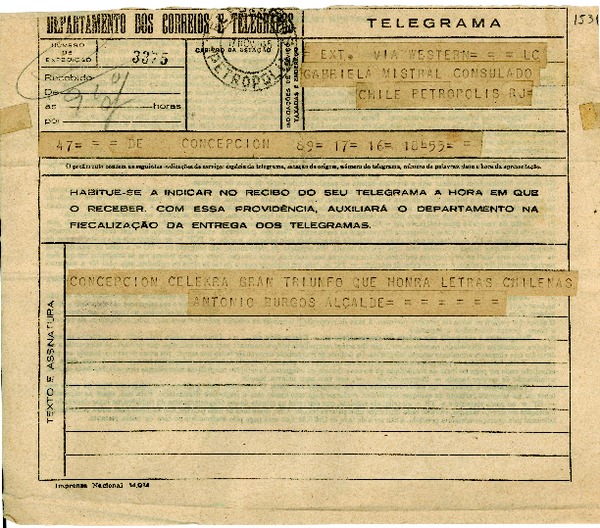 DEPARTAMENTO DOS CORREIOS E TELEGRAFOS
TELEGRAMA
NÚMERO
DE
EXPEDIÇÃO
3375
Recebido
De
as horas
por
CARIMBO DA ESTAÇÃO
PETROPOLIS
INDICAÇÕES DE SERVIÇO
TAXADAS E ENDEREÇO
= EXT. VIA WESTERN= = = LC
GABRIELA MISTRAL CONSULADO
CHILE PETROPOLIS RJ=
47= = = DE CONCEPCION 89= 17= 16= 18=55= = =
O preâmbulo contem as seguintes indicações de serviço: espécie do telegrama, estação de origem, número do telegrama, número de palavras, data e hora da apresentação.
HABITUE-SE A INDICAR NO RECIBO DO SEU TELEGRAMA A HORA EM QUE
O RECEBER. COM ESSA PROVIDÊNCIA, AUXILIARÁ O DEPARTAMENTO NA
FISCALIZAÇÃO DA ENTREGA DOS TELEGRAMAS.
TEXTO E ASSINATURA
CONCEPCION CELEXRA GRAN TRIUNFO QUE HONRA LETRAS CHILENAS
ANTONIO BURGOS ALCALDE= = = = = = =
Imprensa Nacional 14.914